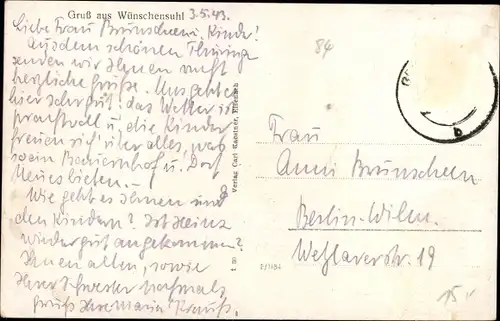 Gruß aus Wünschensuhl 3.5.43.
Liebe Frau Brunschein, Kinder!
Aus dem schönen Thüringen
senden wir Ihnen recht
herzliche Grüße. Uns geht es
hier sehr gut! das Wetter ist
prachtvoll u. die Kinder
freuen sich über alles, was
so ein Bauernhof u. Dorf
Neues bieten. –
Wie geht es Ihnen und
den Kindern? Ist Heinz
wieder gut angekommen?
Ihnen allen, sowie
Ihrer Schwester nochmals
Gruß Ihre Maria Krauß.
84
Verlag Carl
Frau
Anni Brunschein
Berlin-Wilm.
Wetzlarerstr. 19
15.-